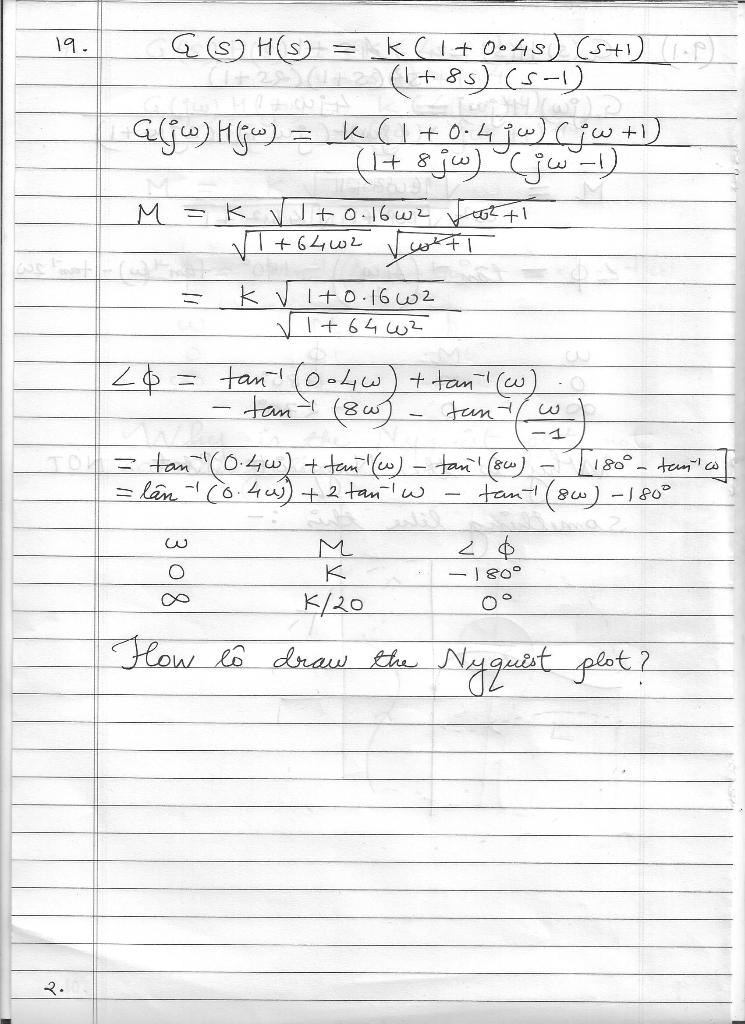 19. G(s) H(s) = K(1+0.4s) (s+1)
(1+8s) (s-1)
G(jω) H(jω) = K(1+0.4jω)(jω+1)
(1+8jω) (jω-1)
M = K √1+0.16ω² √ω²+1
√1+64ω² √ω²+1
= K √1+0.16ω²
√1+64ω²
∠ϕ = tan⁻¹(0.4ω) + tan⁻¹(ω)
- tan⁻¹(8ω) - tan⁻¹(ω/-1)
= tan⁻¹(0.4ω) + tan⁻¹(ω) - tan⁻¹(8ω) - [180° - tan⁻¹ω]
= tan⁻¹(0.4ω) + 2 tan⁻¹ω - tan⁻¹(8ω) - 180°
ω M ∠ϕ
0 K -180°
∞ K/20 0°
How to draw the Nyquist plot?
2.